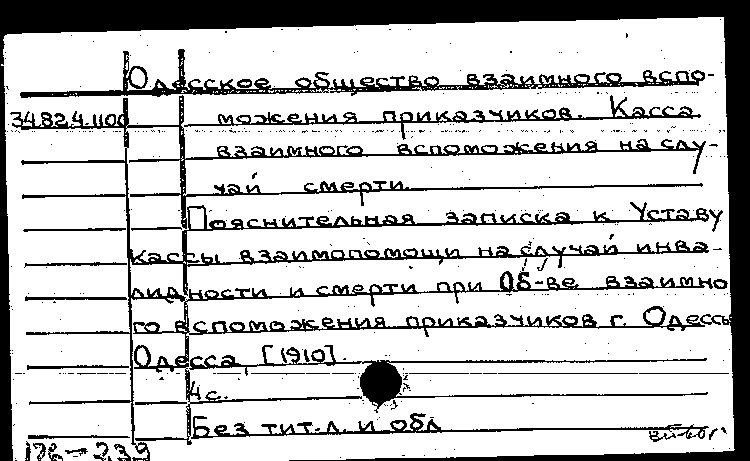 Одесское общество взаимного вспо-
34.824.1100 можения приказчиков. Касса
взаимного вспоможения на слу-
чай смерти.
Пояснительная записка к Уставу
кассы взаимопомощи на случай инва-
лидности и смерти при Об-ве взаимно
го вспоможения приказчиков г. Одессы
Одесса, [1910].
4 с.
Без тит. л. и обл